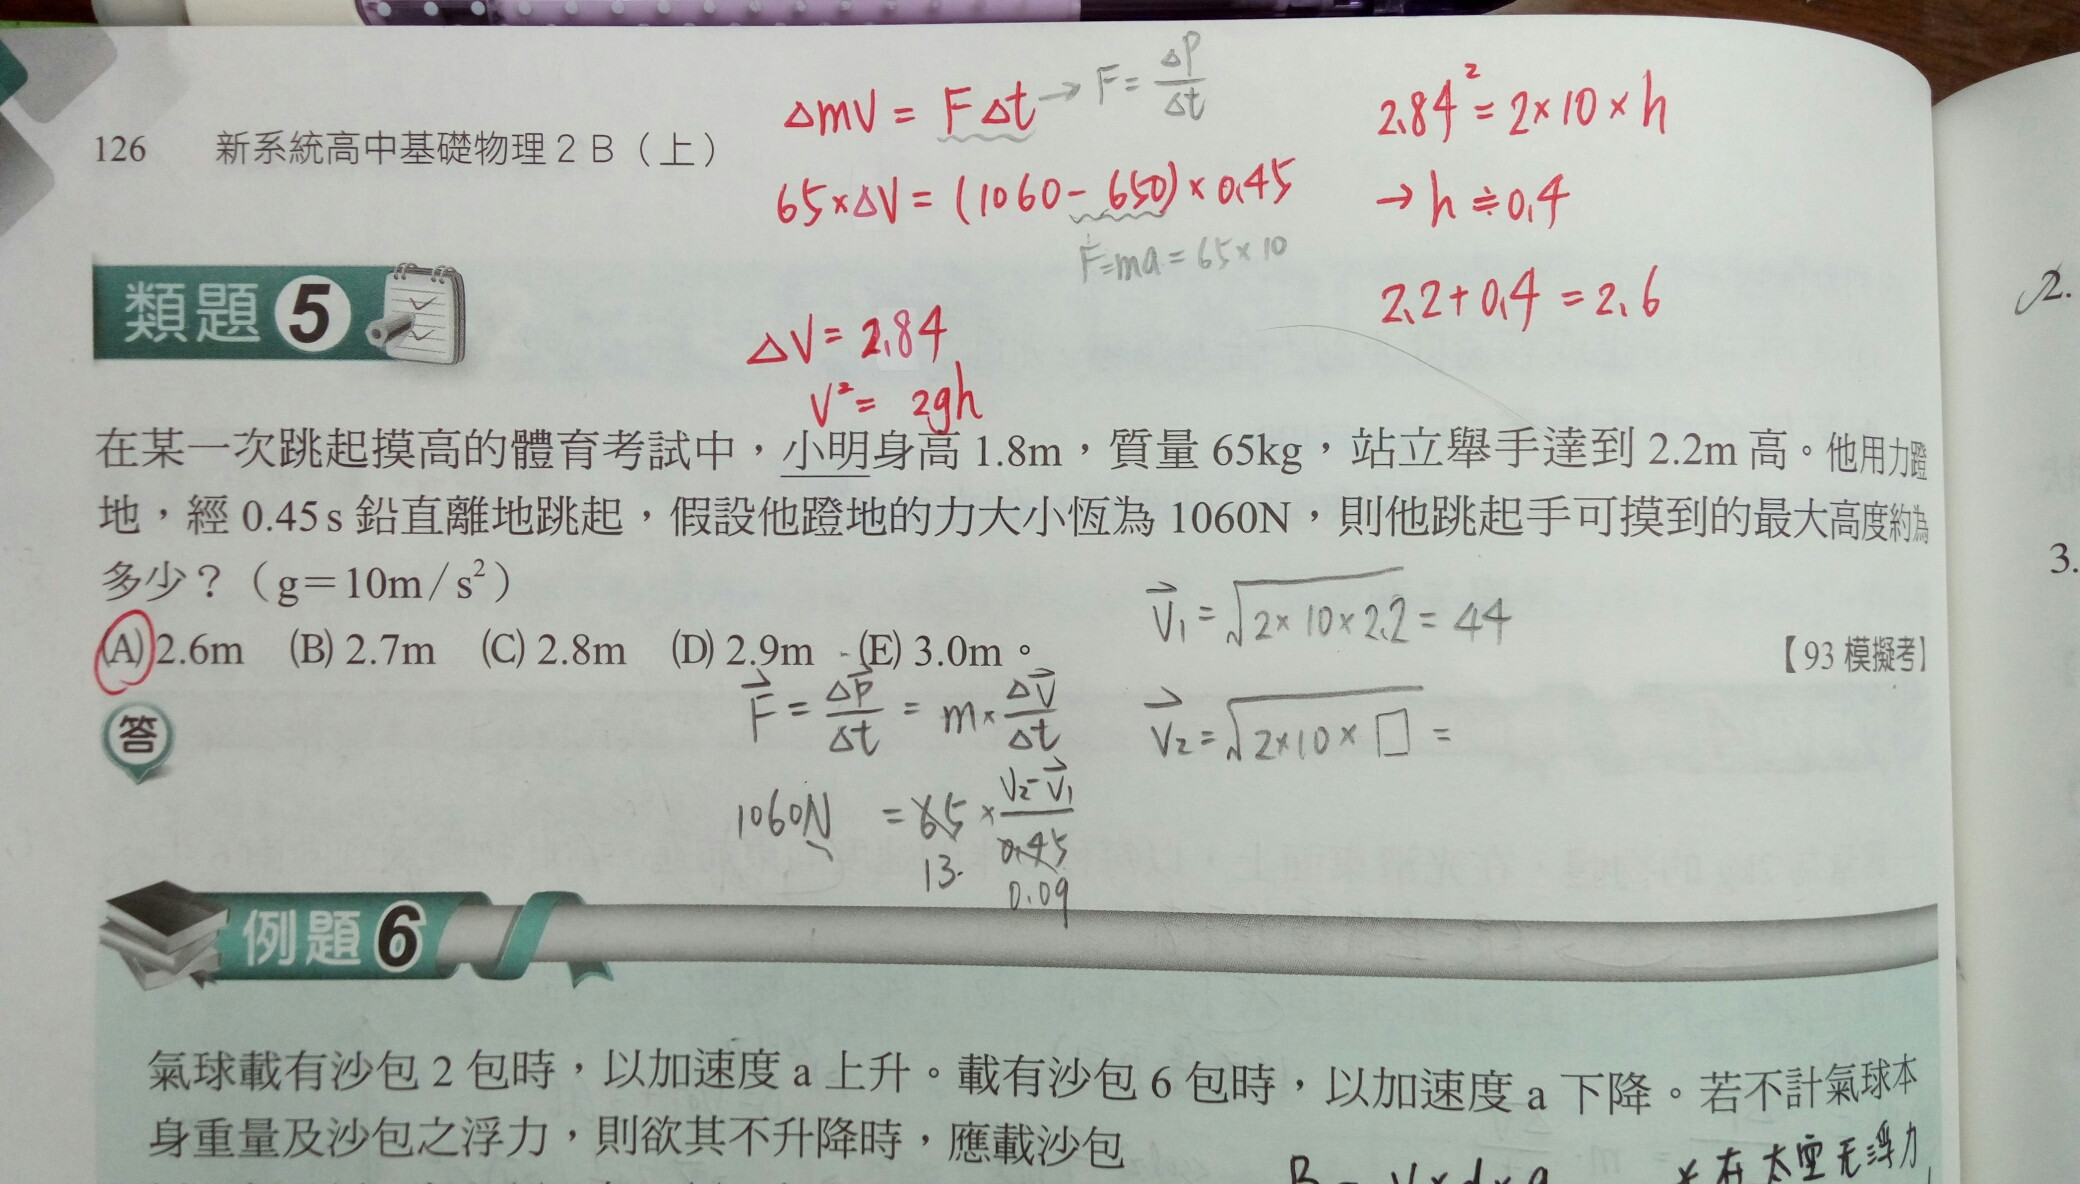 126 新系統高中基礎物理2B（上）
△mV = F△t → F = △P/△t
65×△V = (1060-650)×0.45
F=ma=65×10
△V = 2.84
V² = 2gh
2.84² = 2×10×h
→ h ≑ 0.4
2.2+0.4 = 2.6
類題 5
在某一次跳起摸高的體育考試中，小明身高 1.8m，質量 65kg，站立舉手達到 2.2m 高。他用力蹬
地，經 0.45s 鉛直離地跳起，假設他蹬地的力大小恆為 1060N，則他跳起手可摸到的最大高度約為
多少？（g＝10m/s²）
(A) 2.6m (B) 2.7m (C) 2.8m (D) 2.9m (E) 3.0m。
【93 模擬考】
V₁ = √2×10×2.2 = 44
V₂ = √2×10×□ =
答
F = △P/△t = m×△V/△t
1060N = 65 × V₂-V₁/0.45
13. 0.09
例題 6
氣球載有沙包 2 包時，以加速度 a 上升。載有沙包 6 包時，以加速度 a 下降。若不計氣球本
身重量及沙包之浮力，則欲其不升降時，應載沙包
B = V×d×g
＊在太空無浮力
2.
3.